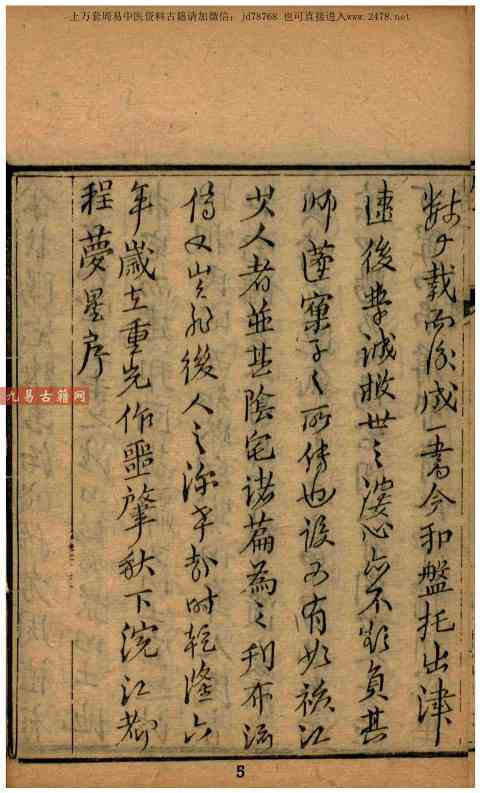 上万套周易中医资料古籍请加微信：jd78768 也可直接进入www.2478.net
數十載而後成一書今和盤托出津
逮後學誠救世之婆心亦不欲負其
師窠子之所傳也設又有如江
其人者並其陰宅諸篇為之刊布流
傳又豈非後人之深幸哉時乾隆六
年歲在重光作噩肇秋下浣江都
程夢星序
九易古籍网
5